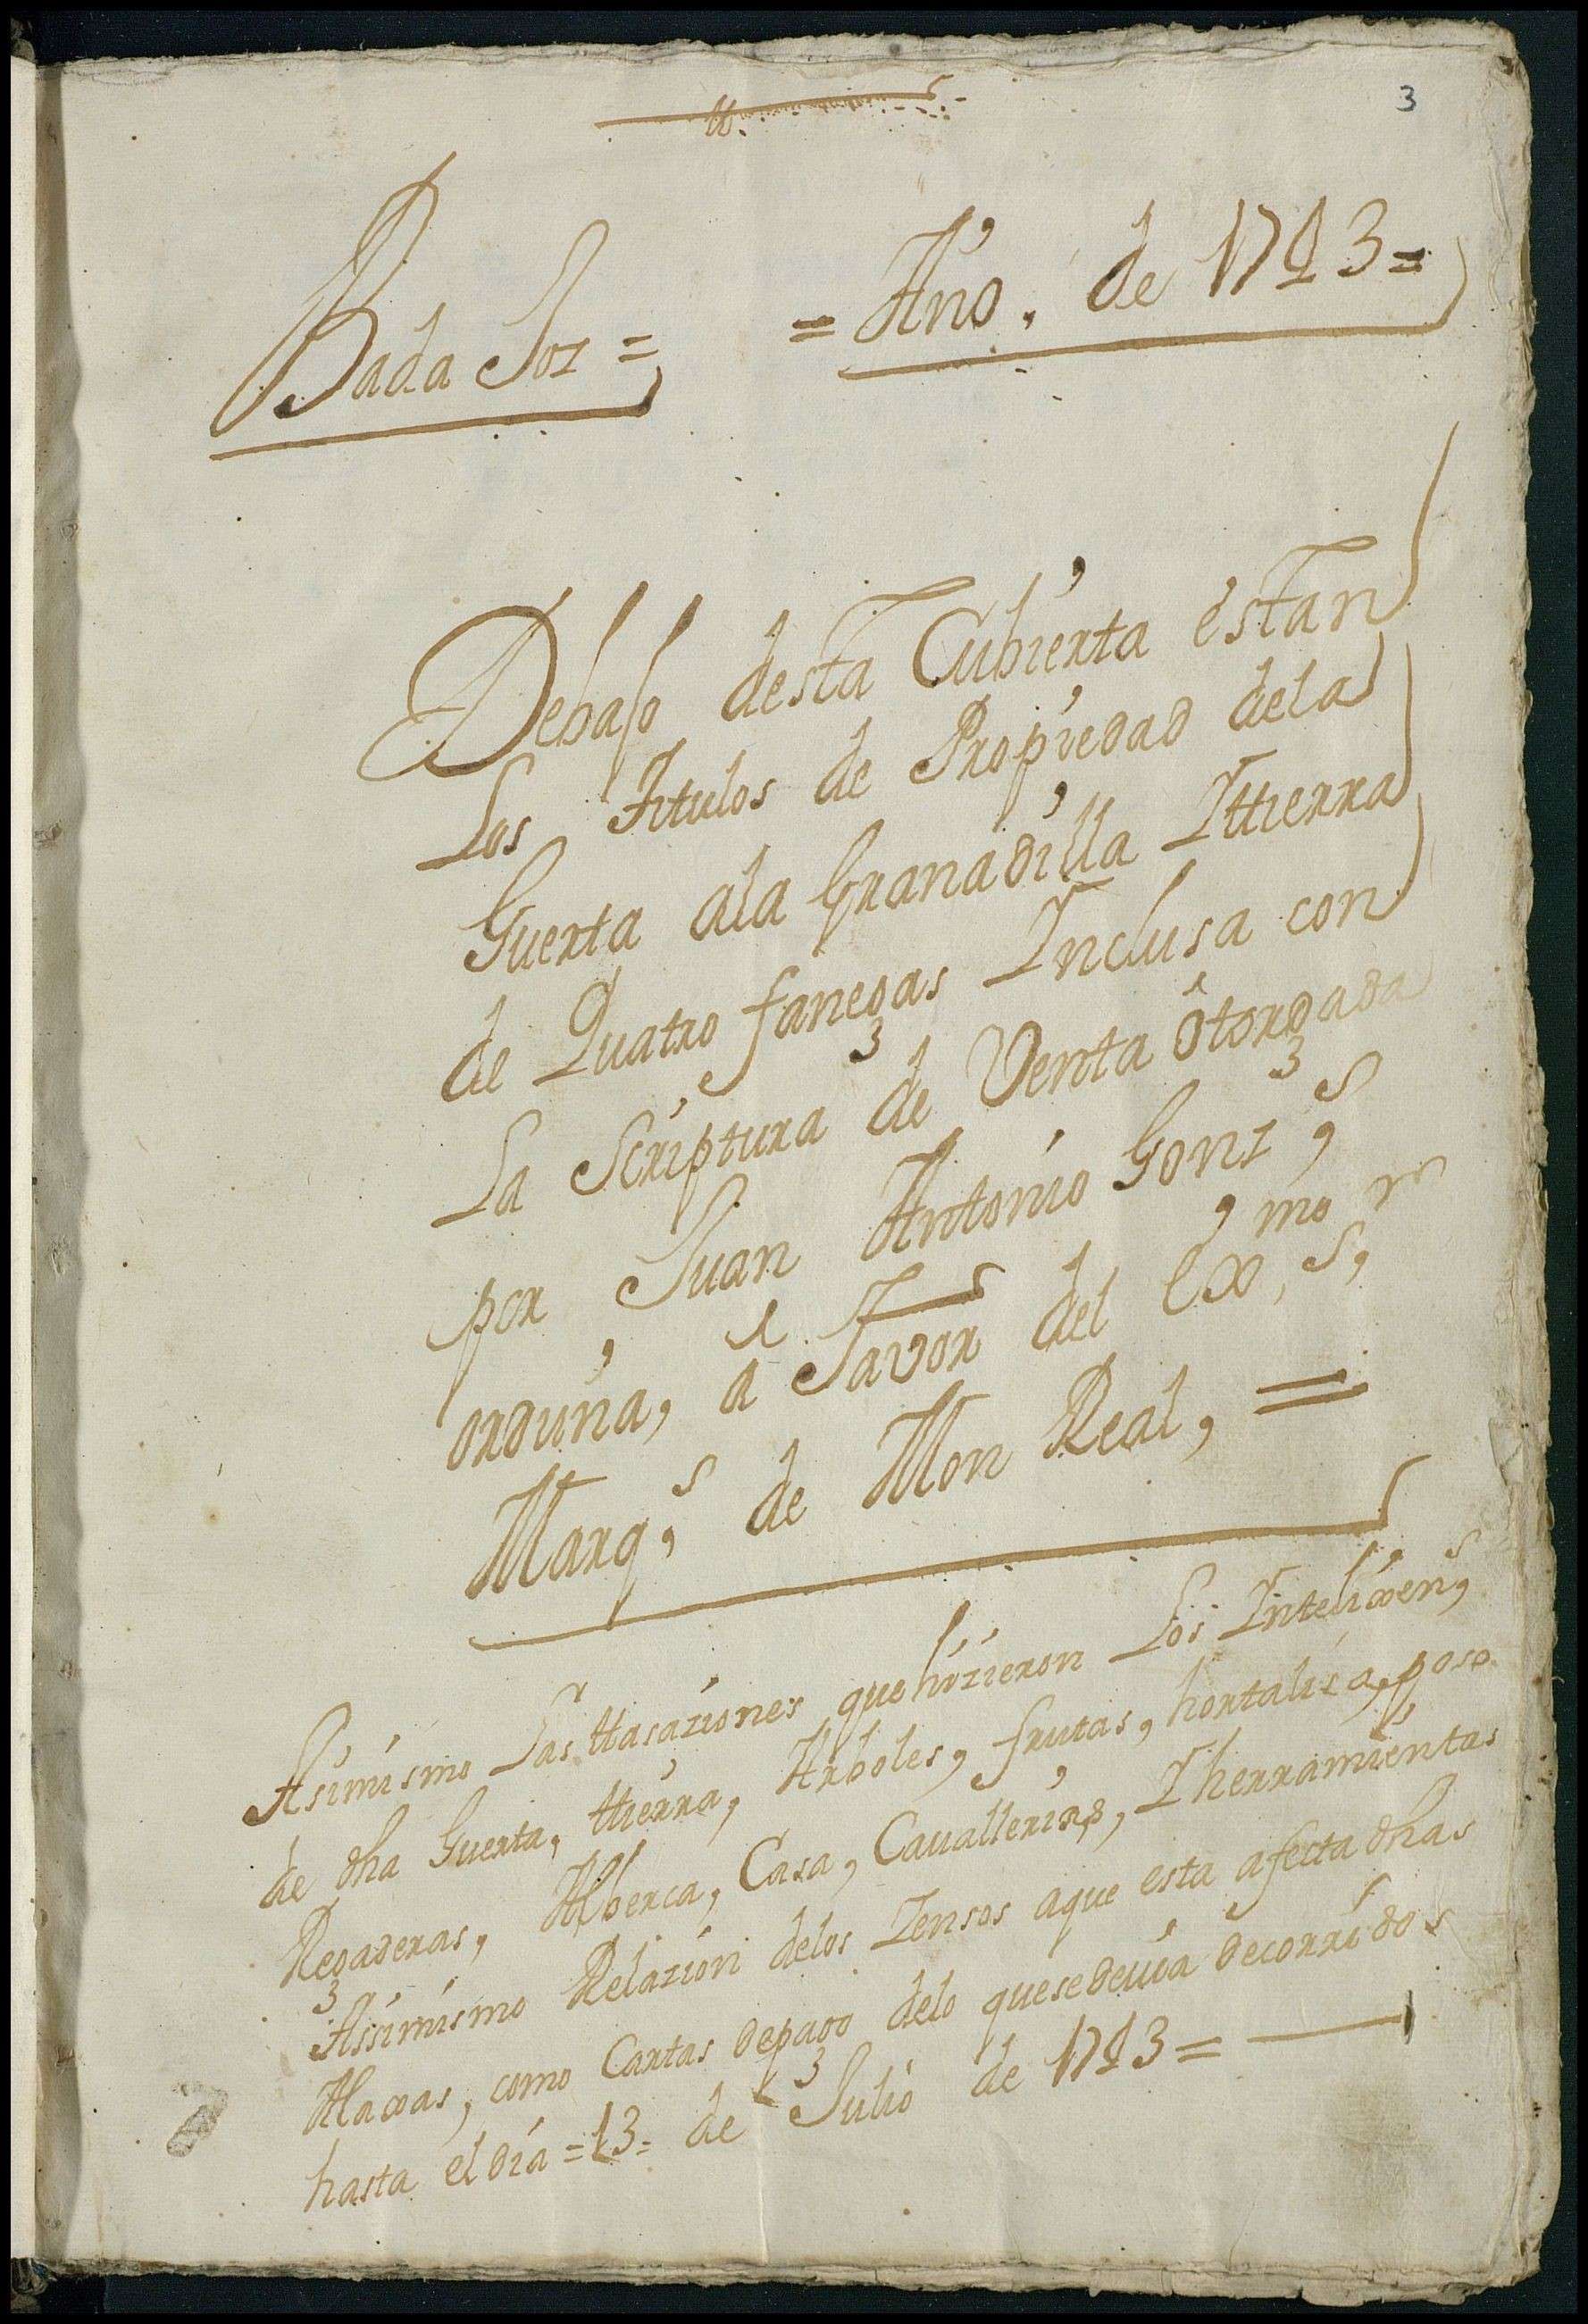 3
Badajoz =
= Año. de 1713 =
Debajo desta Cubierta estan
Los titulos de Propiedad dela
Guerta ala Granadilla Ittierra
de Quatro fanegas Inclusa con
La Scriptura de Venta otorgada
por Juan Antonio Gonz,s
orduña, a favor del Ex,mo s,r
Marq,s de Mon Real, =
Asimismo Las ttasaziones que hizieron Los Intelixen,s
de dha Guerta, ttierra, Arboles, frutas, hortalisa, poso
Regaderas, Alberca, Casa, Cauallerias, I herramientas
Assimismo Relazion delos Zensos aque esta afecta dhas
Alaxas, como Cartas depago delo quesedeuia decorridos
hasta eldia = 13 = de Julio de 1713 =